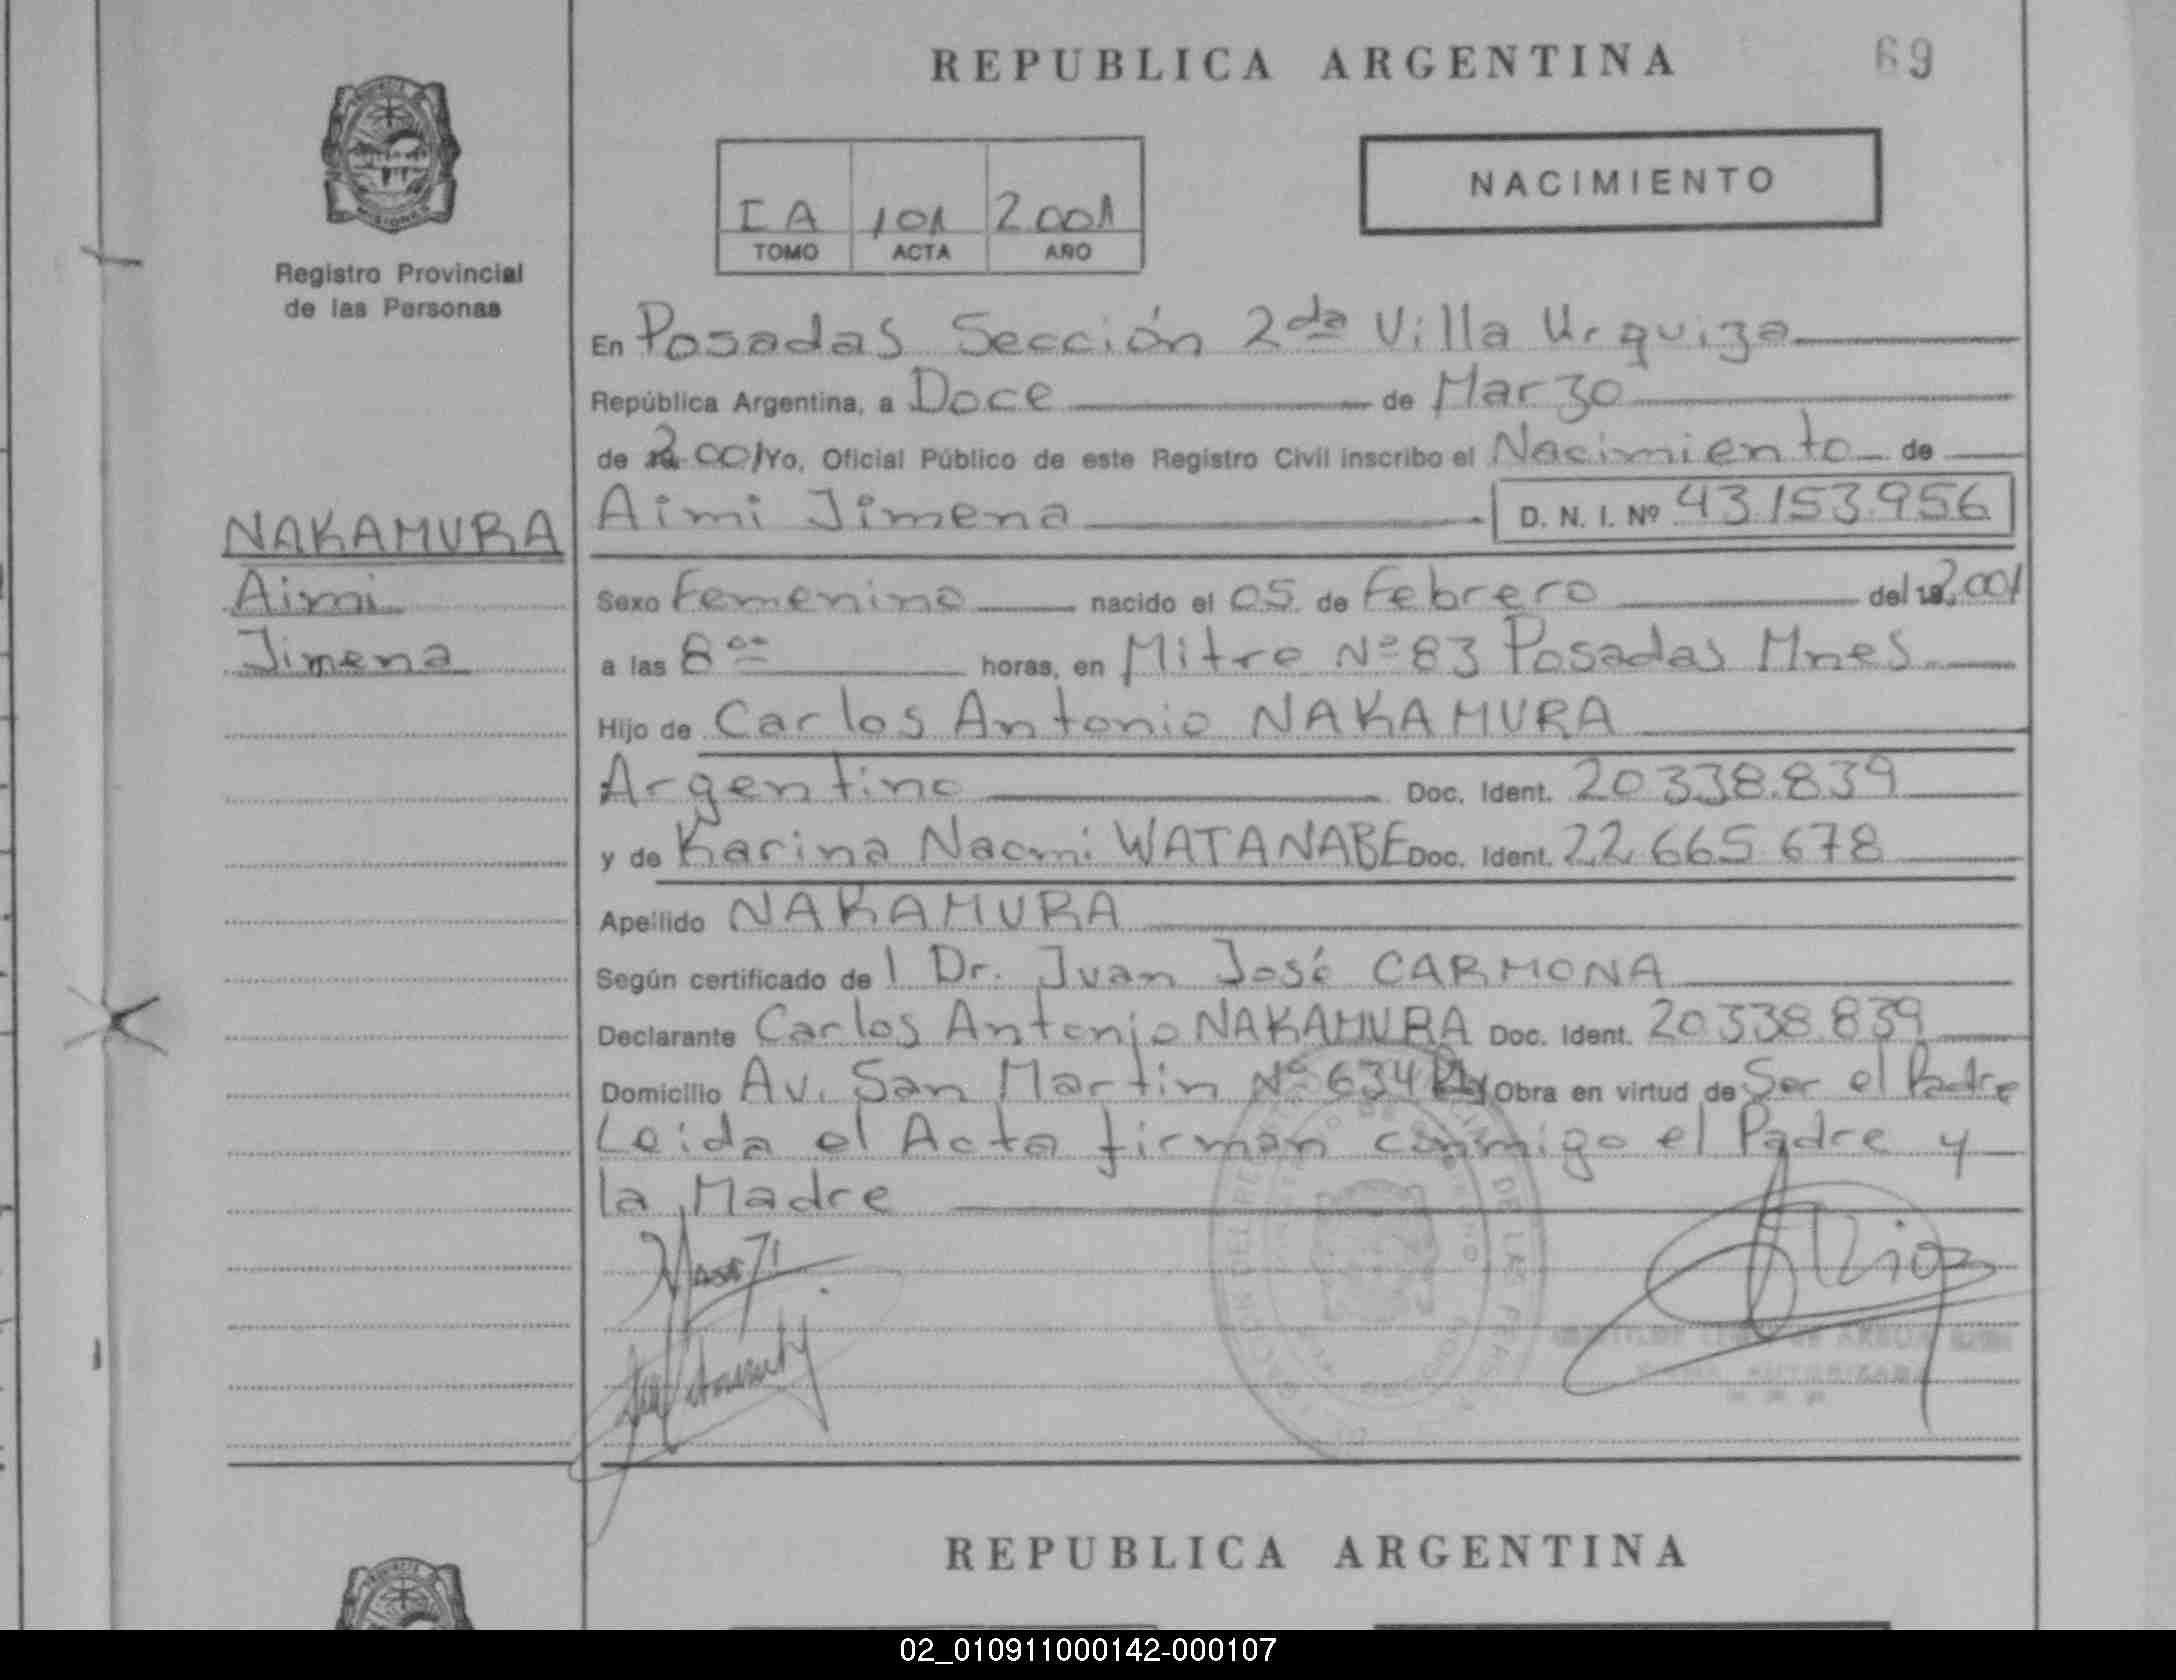 REPUBLICA ARGENTINA
69
MISIONES
Registro Provincial
de las Personas
I A 101 2.001
TOMO ACTA AÑO
NACIMIENTO
En Posadas Sección 2da Villa Urquiza
República Argentina, a Doce de Marzo
de 2.001 Yo, Oficial Público de este Registro Civil inscribo el Nacimiento de
NAKAMURA
Aimi
Jimena
Aimi Jimena D. N. I. Nº 43.153.956
Sexo Femenino nacido el 05 de Febrero del 2.001
a las 8 00 horas, en Mitre Nº 83 Posadas Mnes
Hijo de Carlos Antonio NAKAMURA
Argentino Doc. Ident. 20.338.839
y de Karina Naomi WATANABE Doc. Ident. 22.665.678
Apellido NAKAMURA
Según certificado de l Dr. Juan José CARMONA
Declarante Carlos Antonio NAKAMURA Doc. Ident. 20.338.839
Domicilio Av. San Martin Nº 634 Obra en virtud de Ser el Padre
Leida el Acta firman conmigo el Padre y
la Madre
REPUBLICA ARGENTINA
02_010911000142-000107